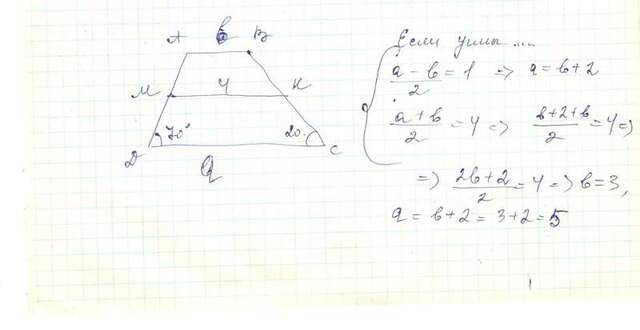 A в B
M 4 K
70° 20.
D a C
Если углы ....
a - в / 2 = 1 => a = в + 2
a + в / 2 = 4 => в + 2 + в / 2 = 4 =>
=> 2в + 2 / 2 = 4 => в = 3,
a = в + 2 = 3 + 2 = 5